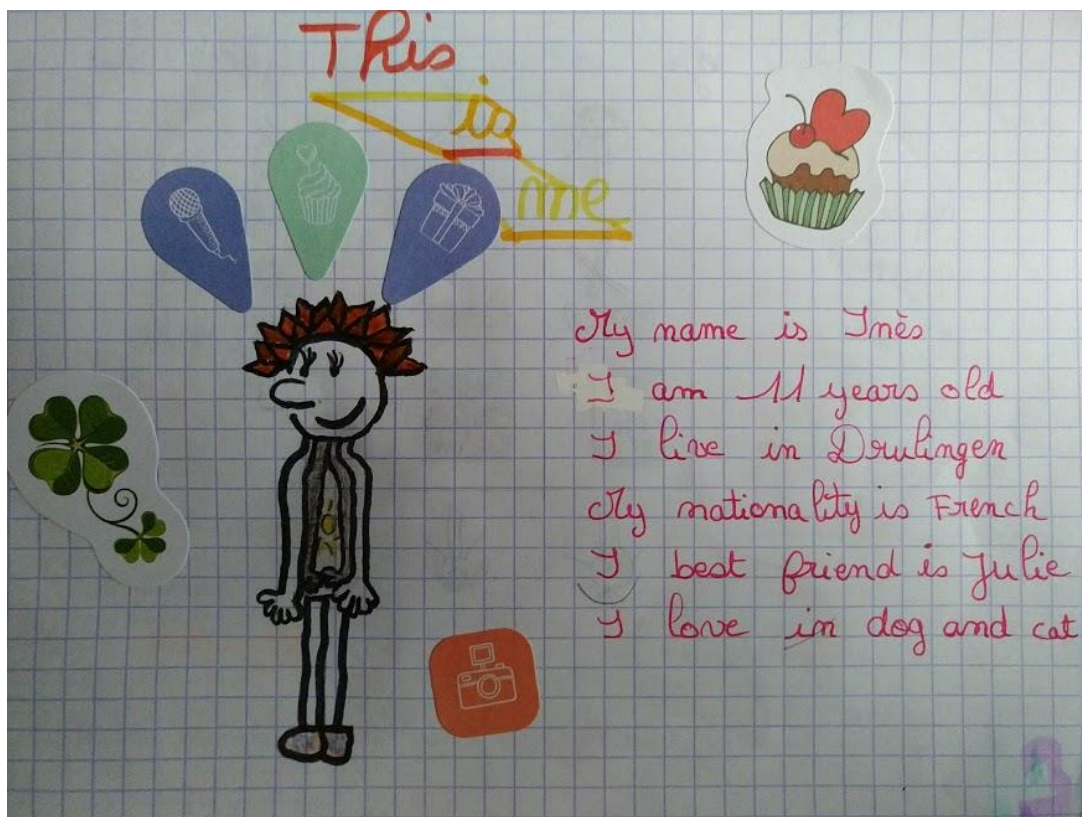 This
is
me
My name is Inès
I am 11 years old
I live in Drulingen
My nationality is French
I best friend is Julie
I love in dog and cat